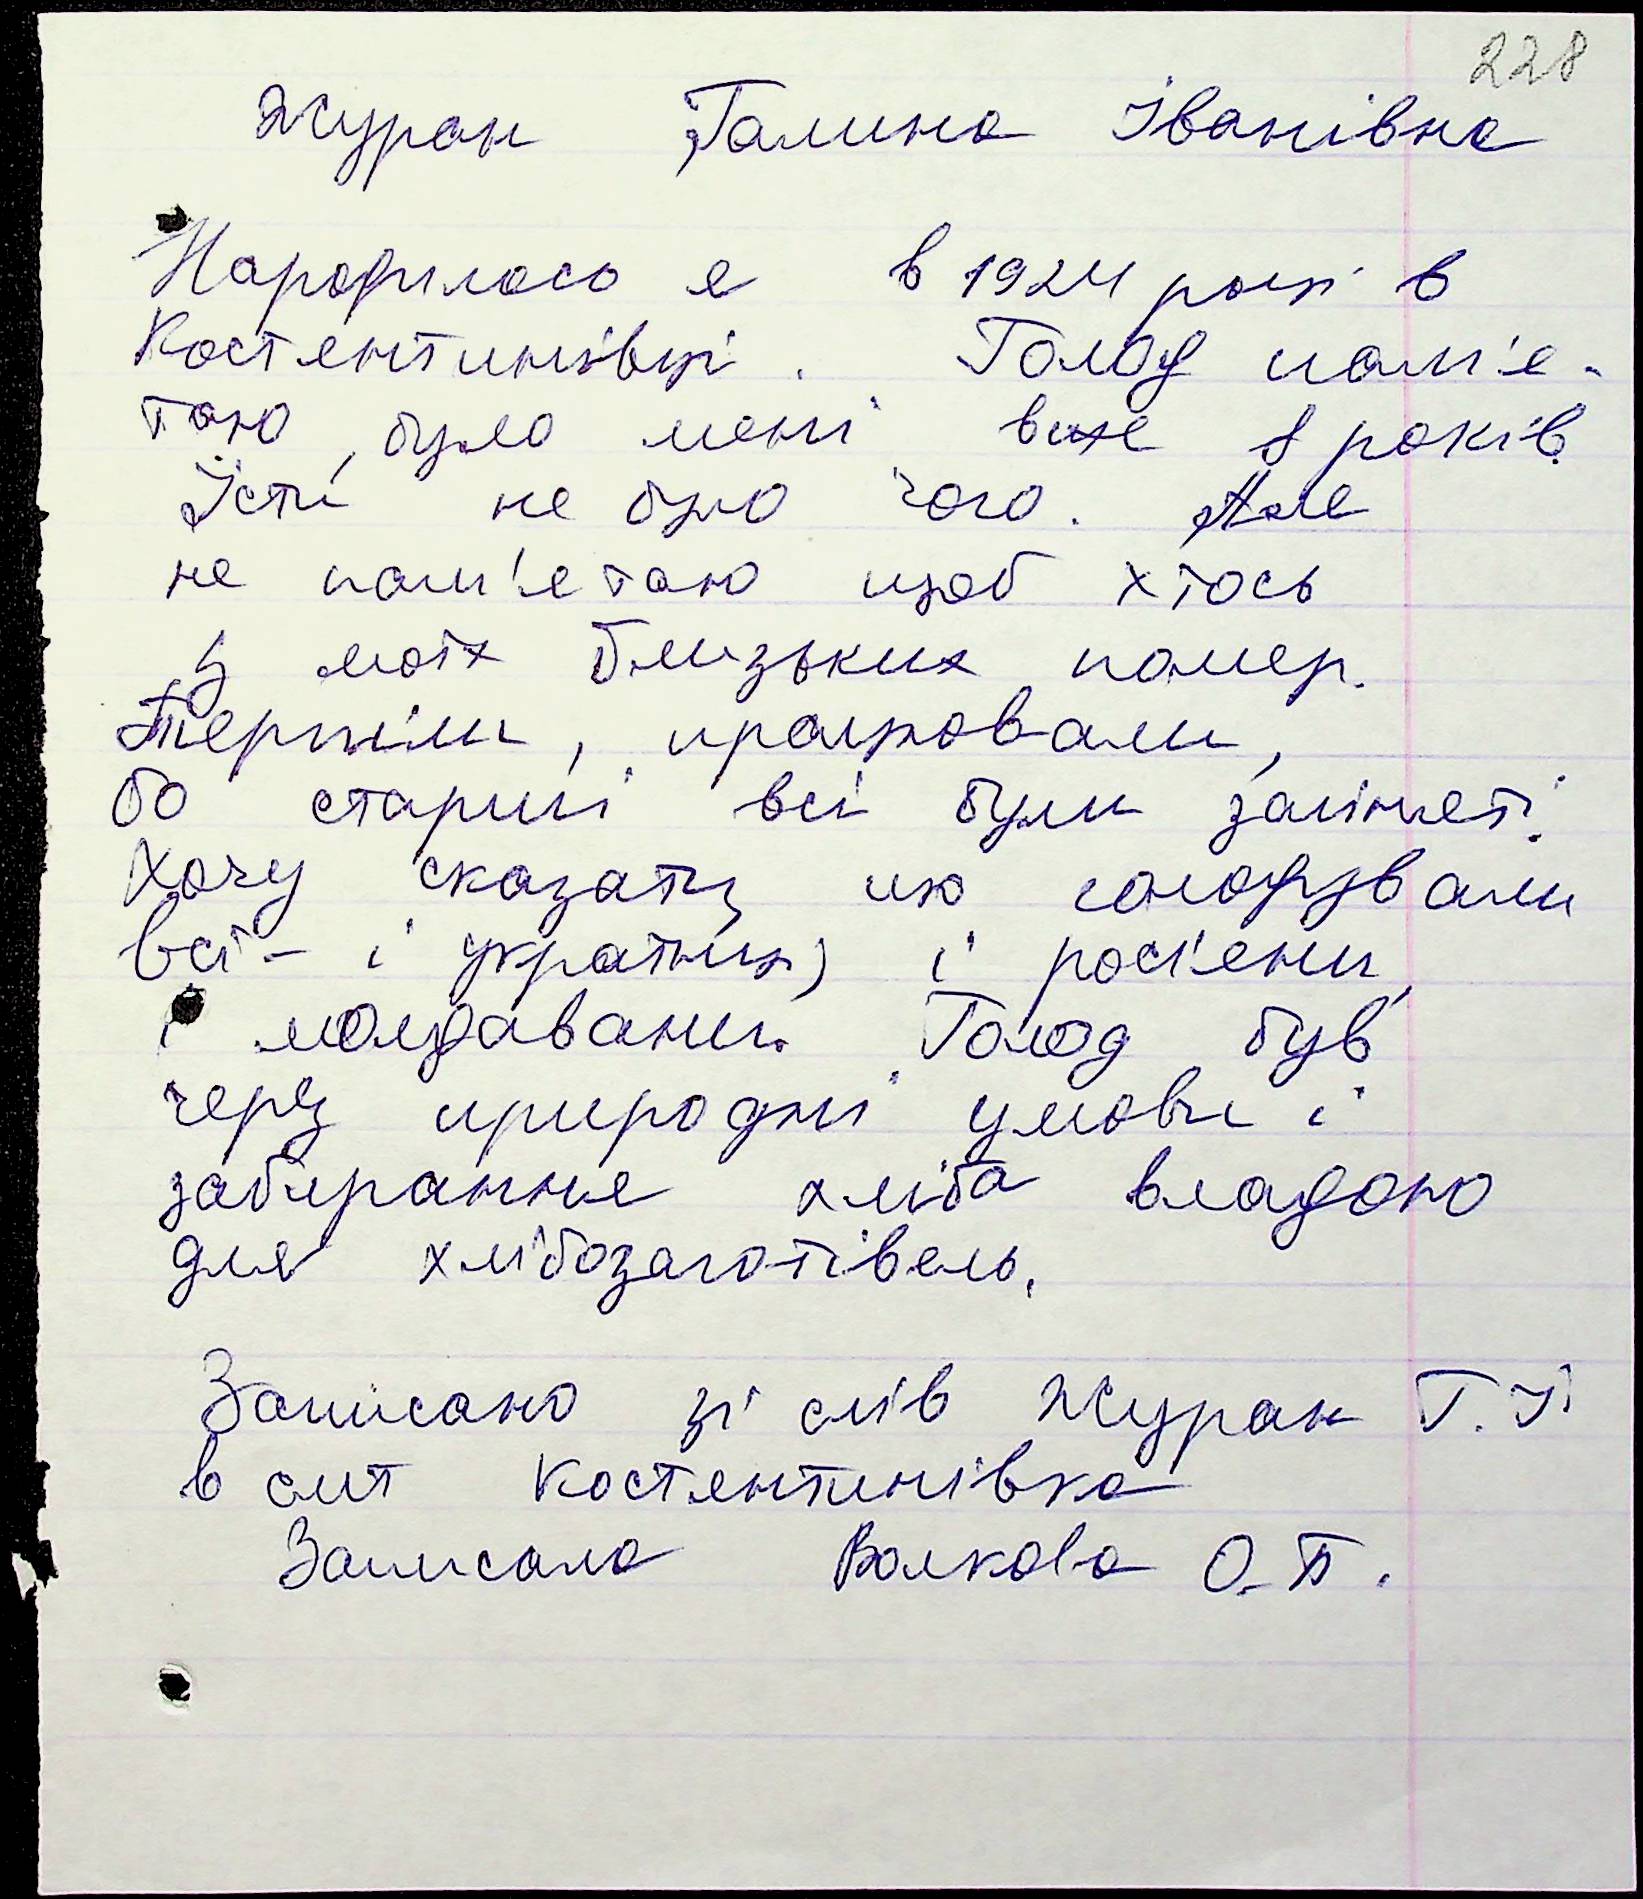 228
Журан Галина Іванівна
Народилась я в 1924 році в
Костянтинівці. Голод пам'я-
таю, було мені вже 8 років.
Їсти не було чого. Але
не пам'ятаю щоб хтось
з моїх близьких помер.
Терпіли, працювали,
бо старші всі були заміжні.
Хочу сказати, що голодували
всі - і українці, і росіяни,
і молдавани. Голод був
через природні умови і
забирання хліба владою
для хлібозаготівель.
Записано зі слів Журан Г.І
в смт Костянтинівка
Записала Волкова О.П.